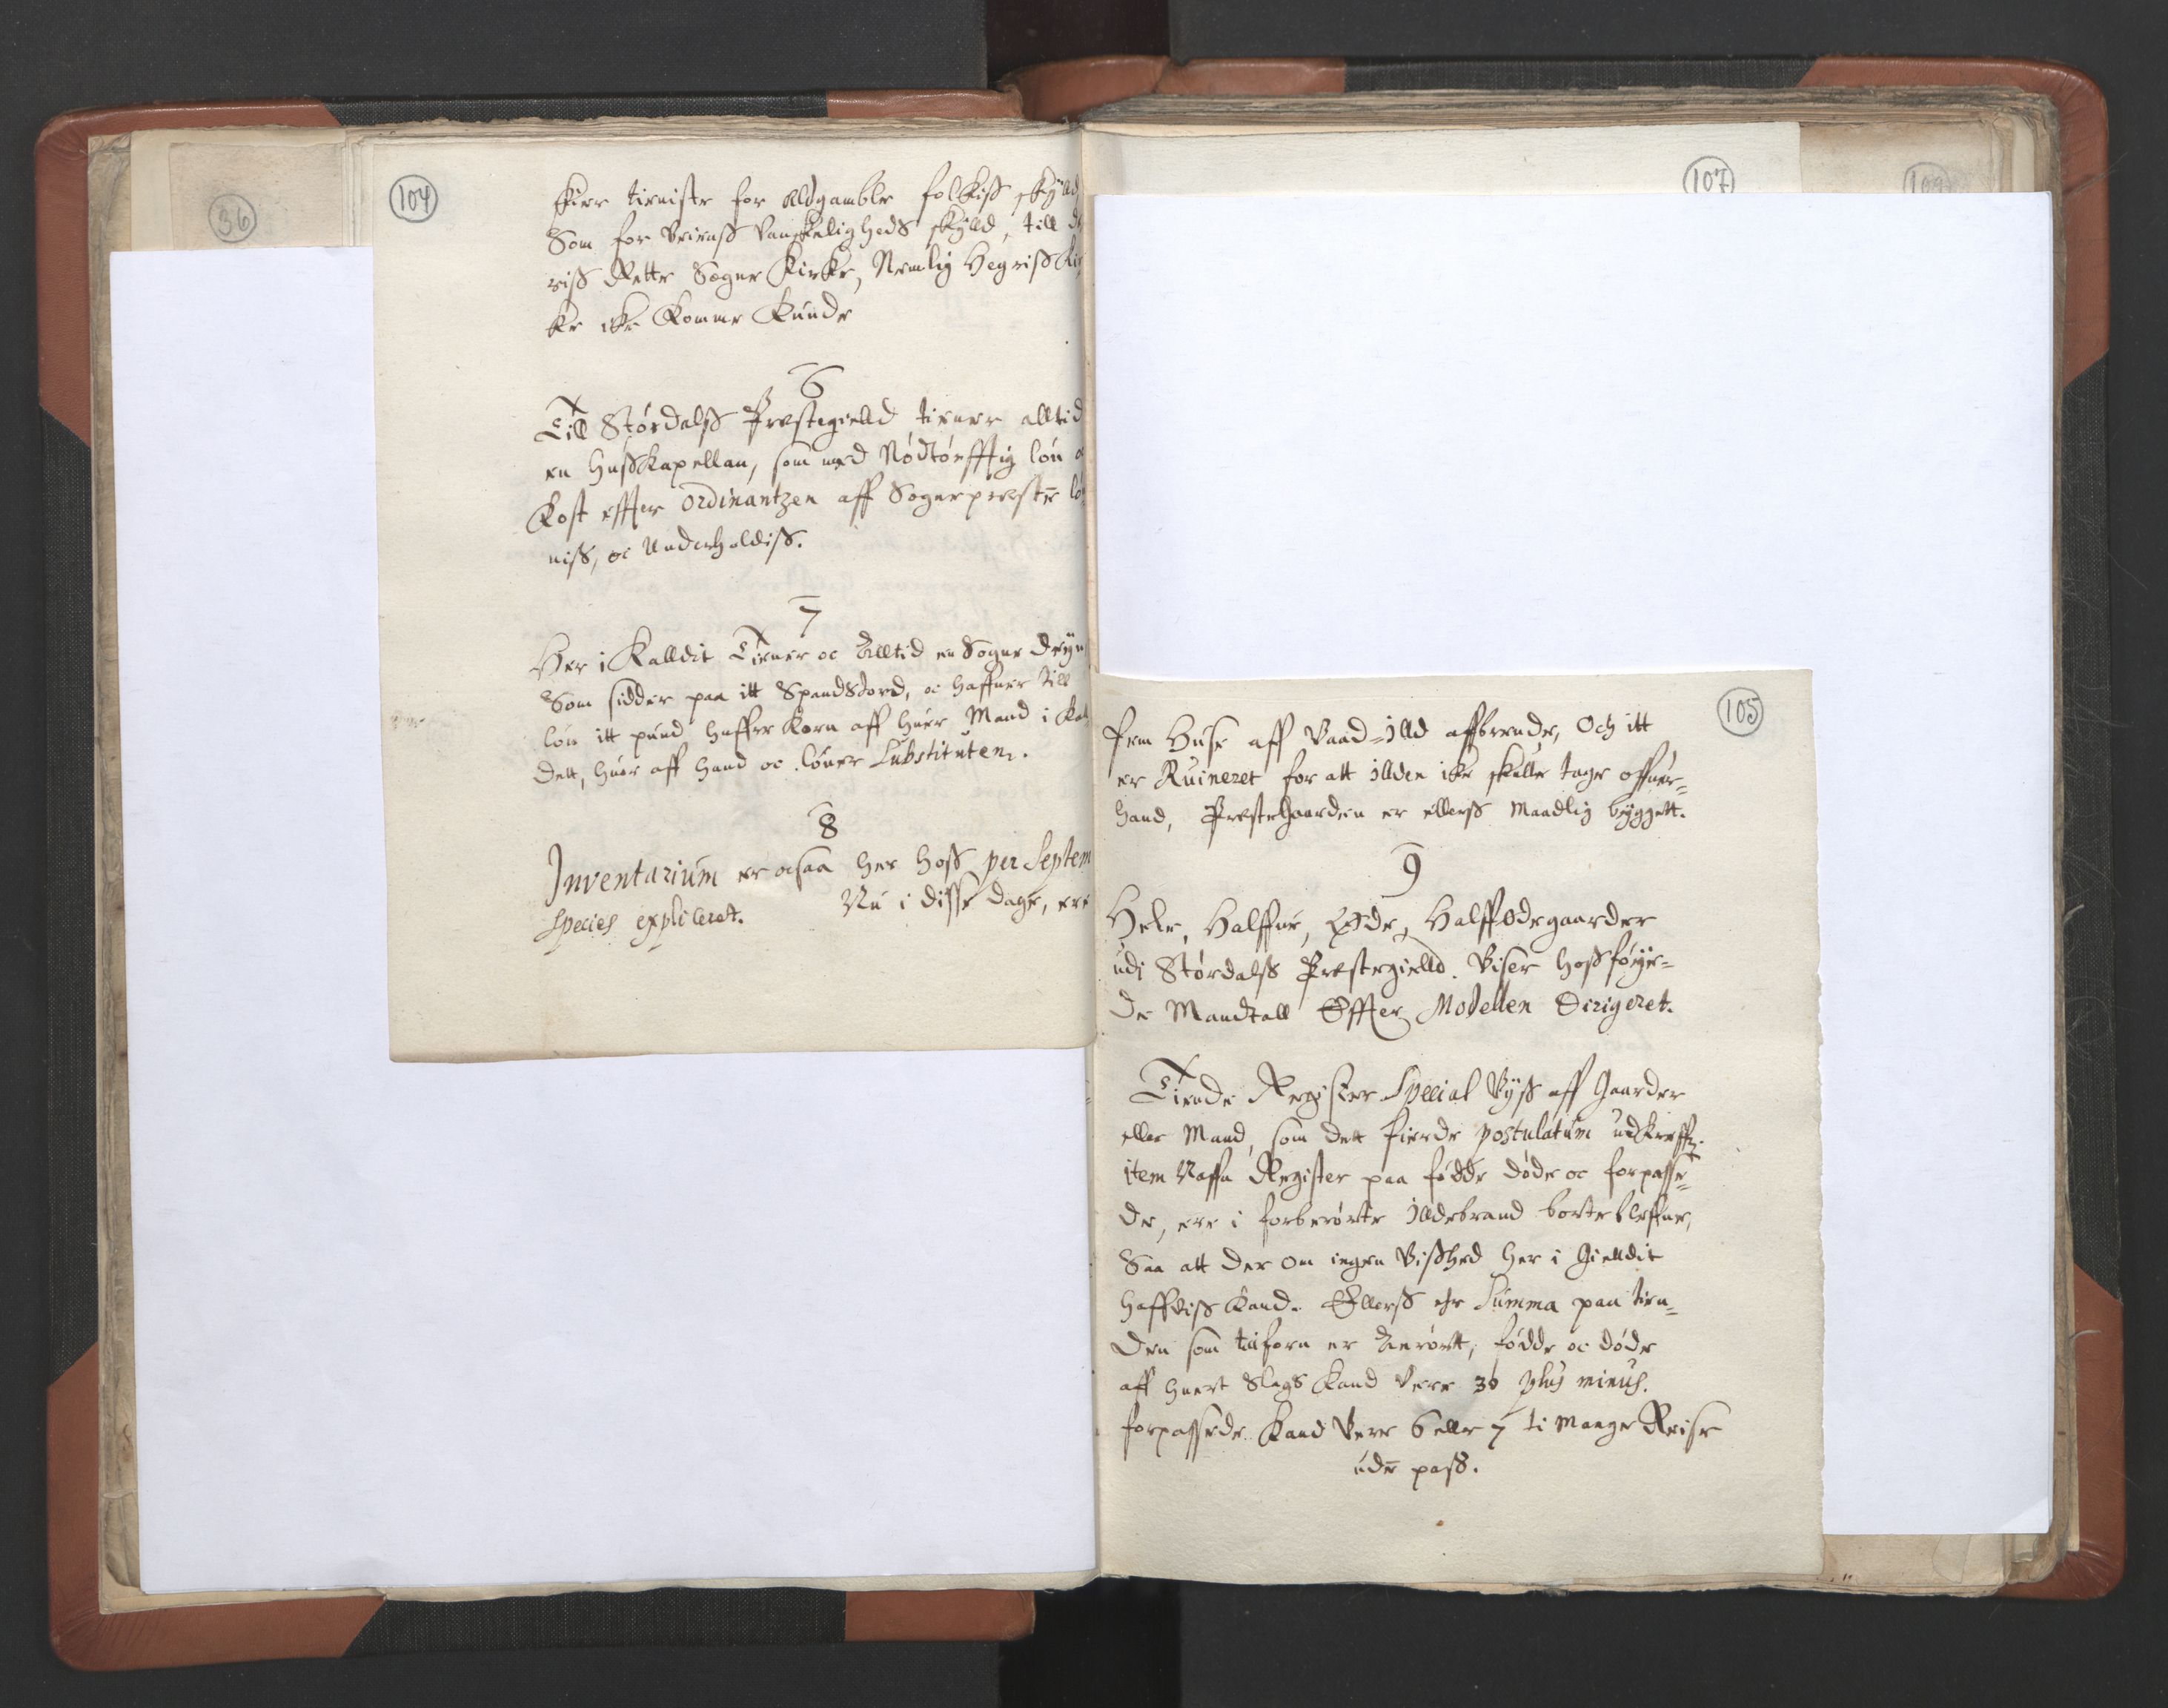 36
104
kier tieniste for Aldgamble folkiss skÿld
Som for Veienss Vanskeligheds skÿlld, till de
riss Rette Sogne Kirke, Nemlig Hegriss Kir
ke ike komme kunde
6
Till Størdalss Præstegielld tiener alltid
en Husskapellan, som med Nødtørfftig løn o
Kost effter ordinantzen aff Sognepresten lø
niss, oc Underholdiss.
7
Her i Kalldit Tiener oc Alltid en Sogne Degn
Som sidder paa itt Spandsiord, oc haffuer till
løn itt pund haffre korn aff huer Mand i Kal
dett, huor aff hand oc løner Substituten.
8
Inventarium er ocsaa her hoss per Septem
Species expliceret. Nu i disse dage, ere
107
109
105
fem Huse aff Vaad-Illd affbrende, Och itt
er Ruineret for att Illden ike skulle tage offuer-
hand, Præstegaarden er ellerss Maadlig bÿggett.
9
Hele, Halffue, Øde, Halfføde gaarder
udi Størdalss Præstegielld. Viser hossføÿe-
de Mandtall Effter Modellen Dirigeret.
Tiende Register Special Vÿss aff Gaarder
eller Mand, som dett fierde postulatum udkreffr.
item Naffn Register paa fødde døde oc forpasse-
de, ere i forberørte Illdebrand borte bleffne,
Saa att der om ingen Visshed her i Gielldit
haffuiss kand. Ellerss ehr Summa paa tien-
den som tilforn er Anrørtt, fødde oc døde
aff huert Slags kand Vere 30 plus minus.
forpassede kand Vere 6 eller 7 ti Mange Reise
uden pass.